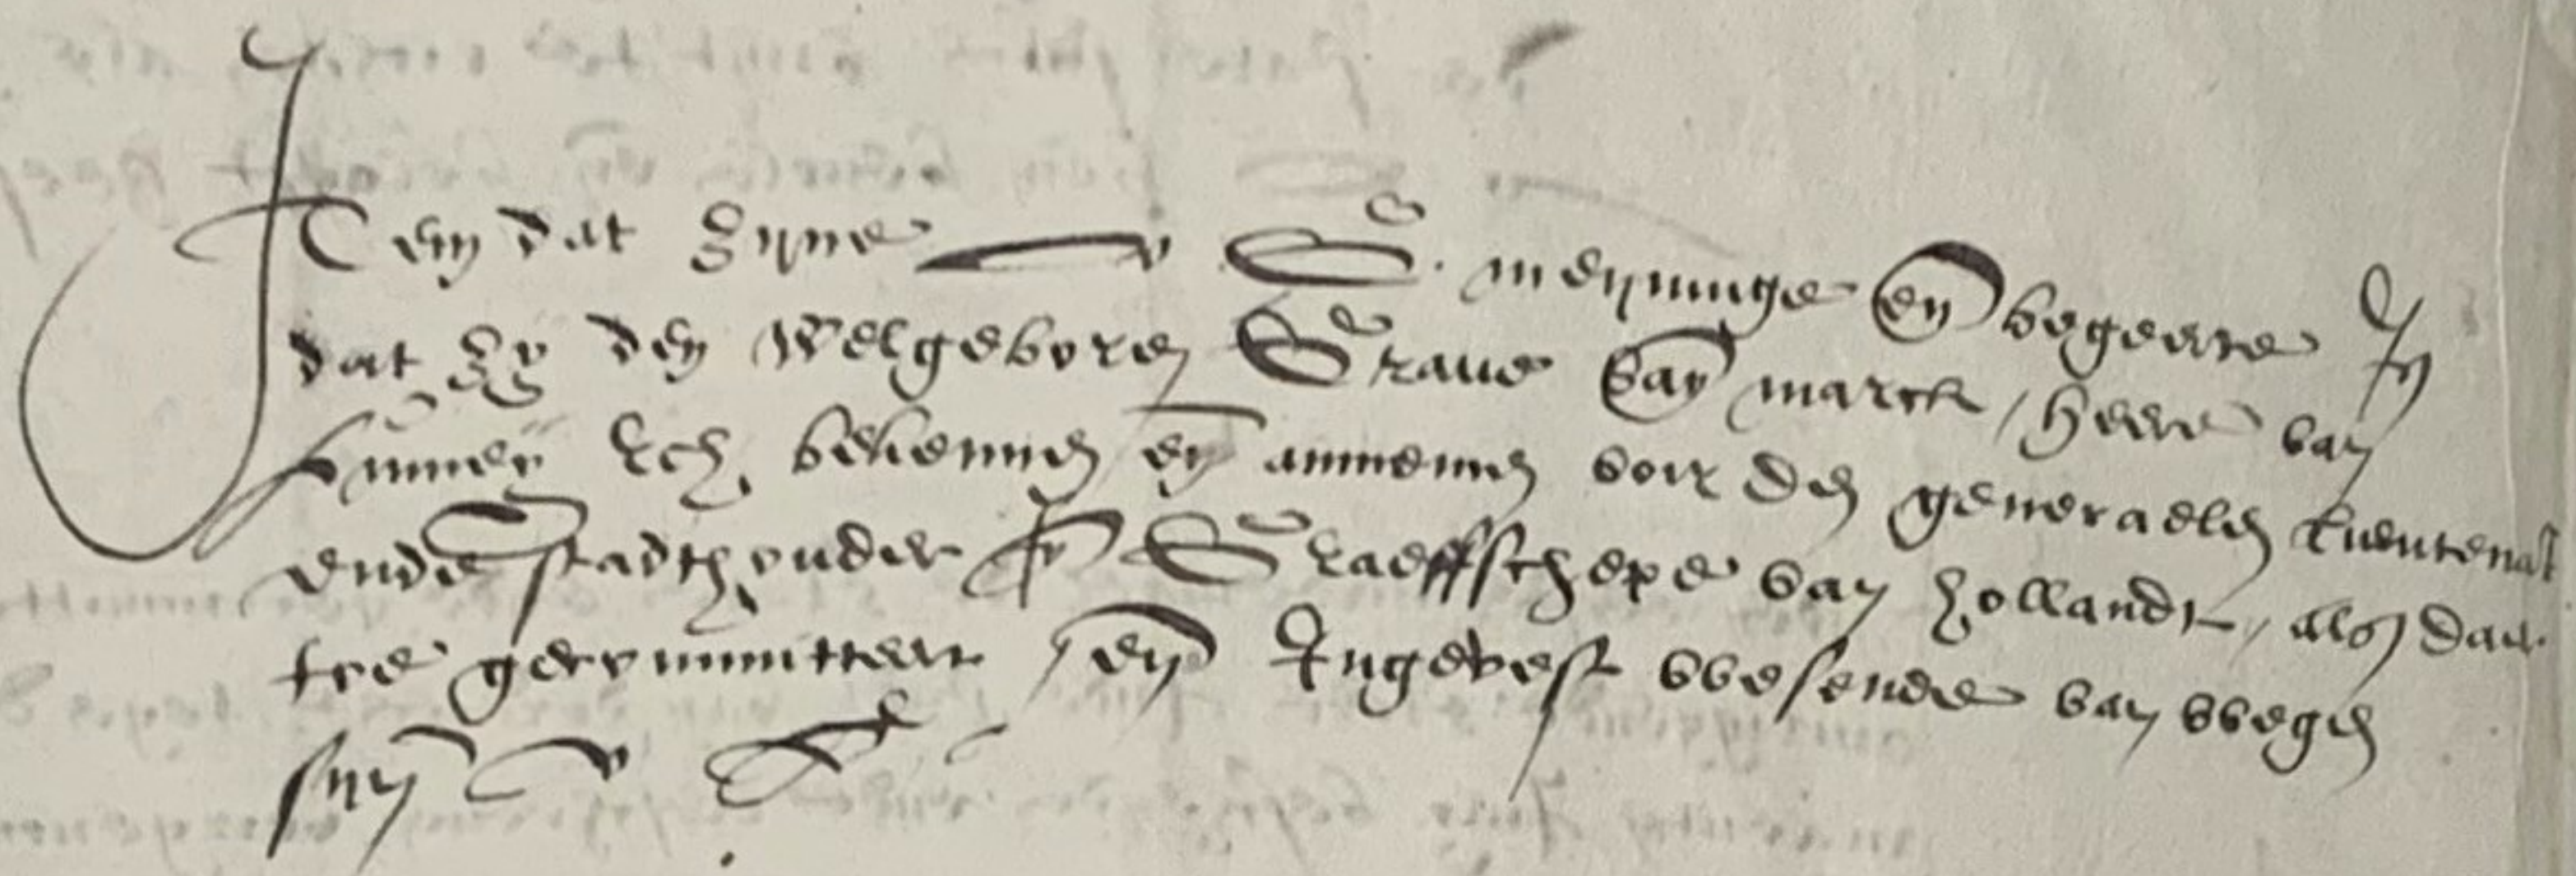 Item dat zyne v G. meyninge en begeerte Is
dat zy den Welgeboren Graue van marck / heere van
Lumey etc. bekennen en annemen voir den generaelen Lieutenant
ende Stadthouder In Graeffschepe van hollandt, als daer
toe gecommitteert / en Ingevest wesende van wegen
syn